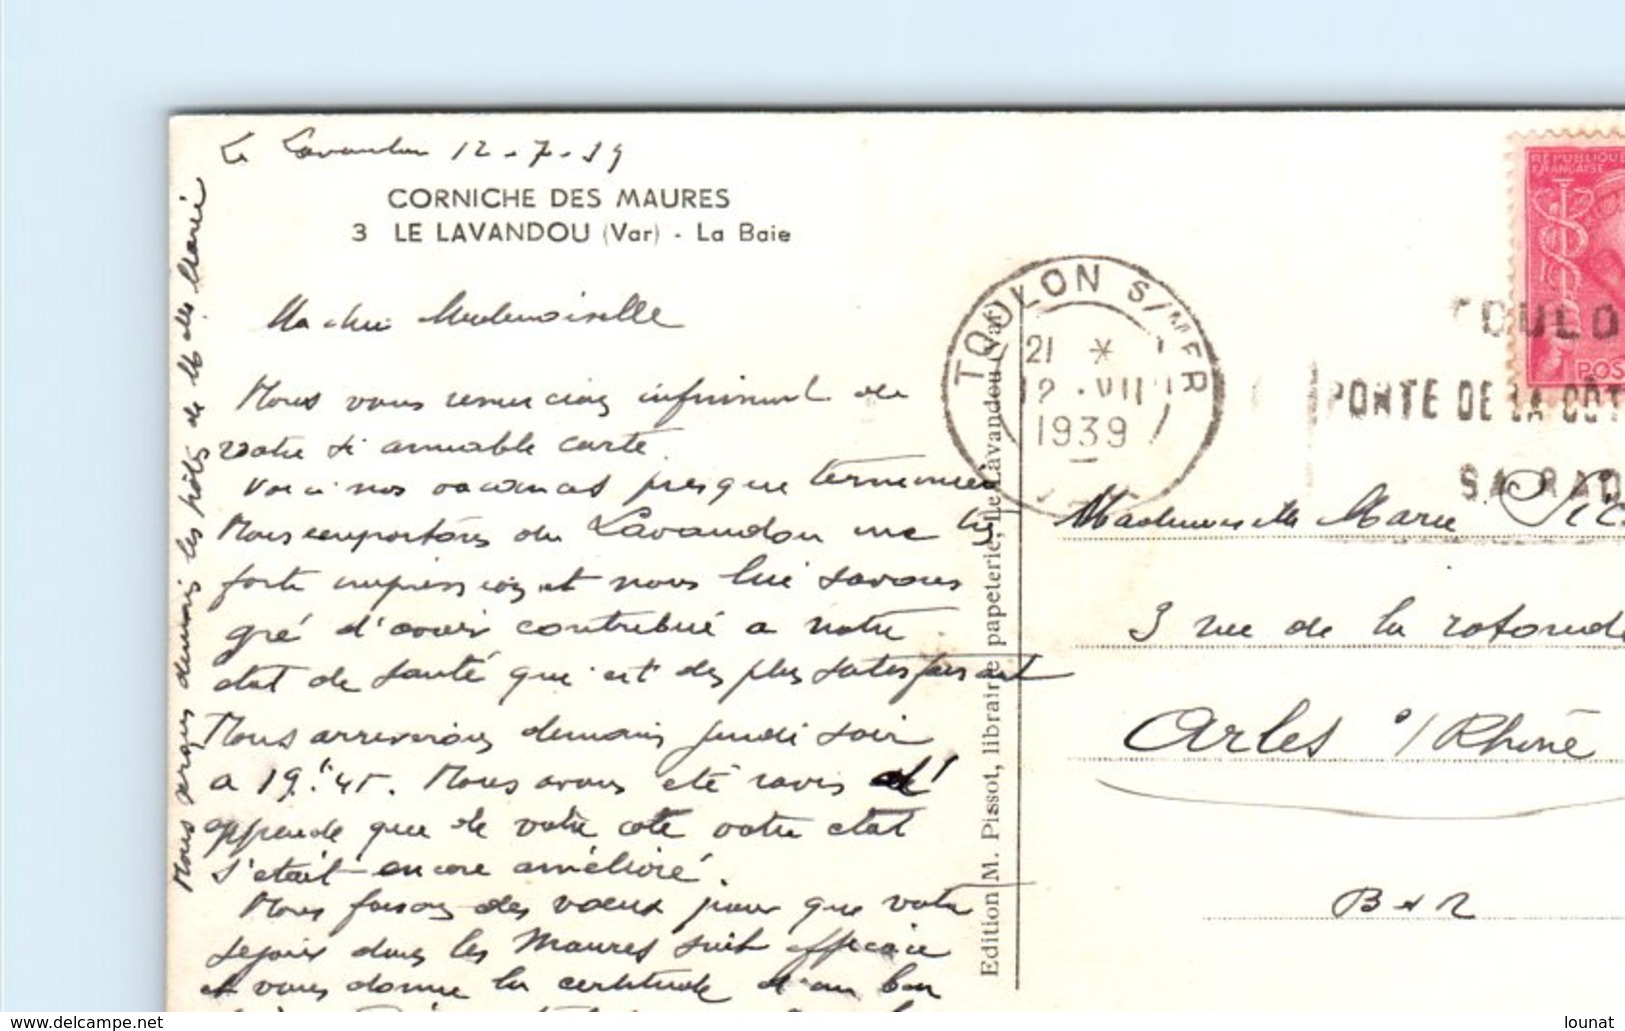 Le Lavandou 12-7-39
CORNICHE DES MAURES
3 LE LAVANDOU (Var) - La Baie
Ma chère Mademoiselle
Nous vous remercions infiniment de
votre si aimable carte.
Voici nos vacances presque terminées
Nous emportons du Lavandou une très
forte impression et nous lui savons
gré d'avoir contribué a notre
état de santé qui est des plus satisfaisant
Nous arriverons demain jeudi soir
a 19h45. Nous avons été ravis d'
apprendre que de votre coté votre état
s'etait encore amélioré.
Nous faisons des voeux pour que votre
sejour dans les Maures soit efficace
et vous donne la certitude d'un bon
Nous serons demain les hôtes de Marie
Edition M. Pissot, libraire papeterie, Le Lavandou (Var)
TOULON S/MER
21 *
12 · VII
1939
TOULO
PORTE DE LA COT
SA RAD
REPUBLIQUE
FRANÇAISE
POS
Mademoiselle Marie
3 rue de la rotonde
Arles s/Rhône
B d R
delcampe.net
lounat